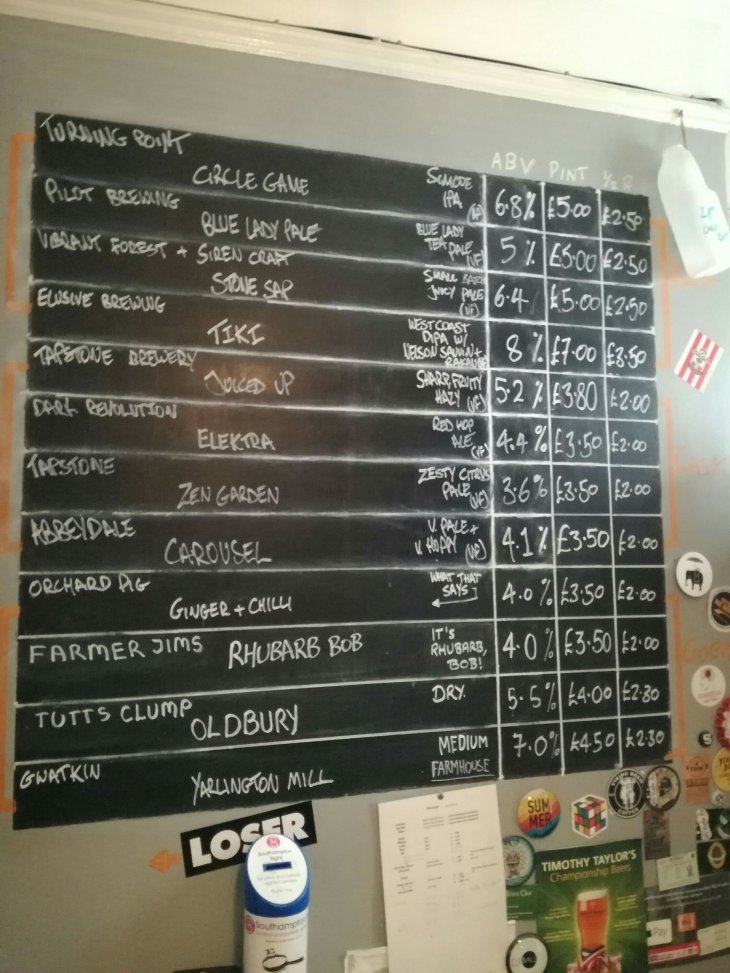 ABV PINT
TURNING POINT
CIRCLE GAME
IPA
6.8% £5.00 £2.50
PILOT BREWING
BLUE LADY PALE
BLUE LADY
TEA PALE
(VF)
5% £5.00 £2.50
VIBRANT FOREST + SIREN CRAFT
STONE SAP
SMALL BATCH
JUICY PALE
(VF)
6.4 £5.00 £2.50
ELUSIVE BREWING
TIKI
WEST COAST
DIPA W/
NELSON SAUVIN +
8% £7.00 £3.50
TAPSTONE BREWERY
JUICED UP
SHARP, FRUITY
HAZY (VF)
5.2% £3.80 £2.00
DARK REVOLUTION
ELEKTRA
RED HOP
ALE
(VF)
4.4% £3.50 £2.00
TAPSTONE
ZEN GARDEN
ZESTY CITRUS
PALE
(VF)
3.6% £3.50 £2.00
ABBEYDALE
CAROUSEL
V. PALE +
V. HOPPY (VF)
4.1% £3.50 £2.00
ORCHARD PIG
GINGER + CHILLI
WHAT THAT
SAYS
4.0% £3.50 £2.00
FARMER JIMS RHUBARB BOB
IT'S
RHUBARB,
BOB!
4.0% £3.50 £2.00
TUTTS CLUMP OLDBURY
DRY.
5.5% £4.00 £2.30
GWATKIN
YARLINGTON MILL
MEDIUM
FARMHOUSE
7.0% £4.50 £2.30
LOSER
Southampton
Southampton
SUM
MER
TIMOTHY TAYLOR'S
Championship Beers
Pay